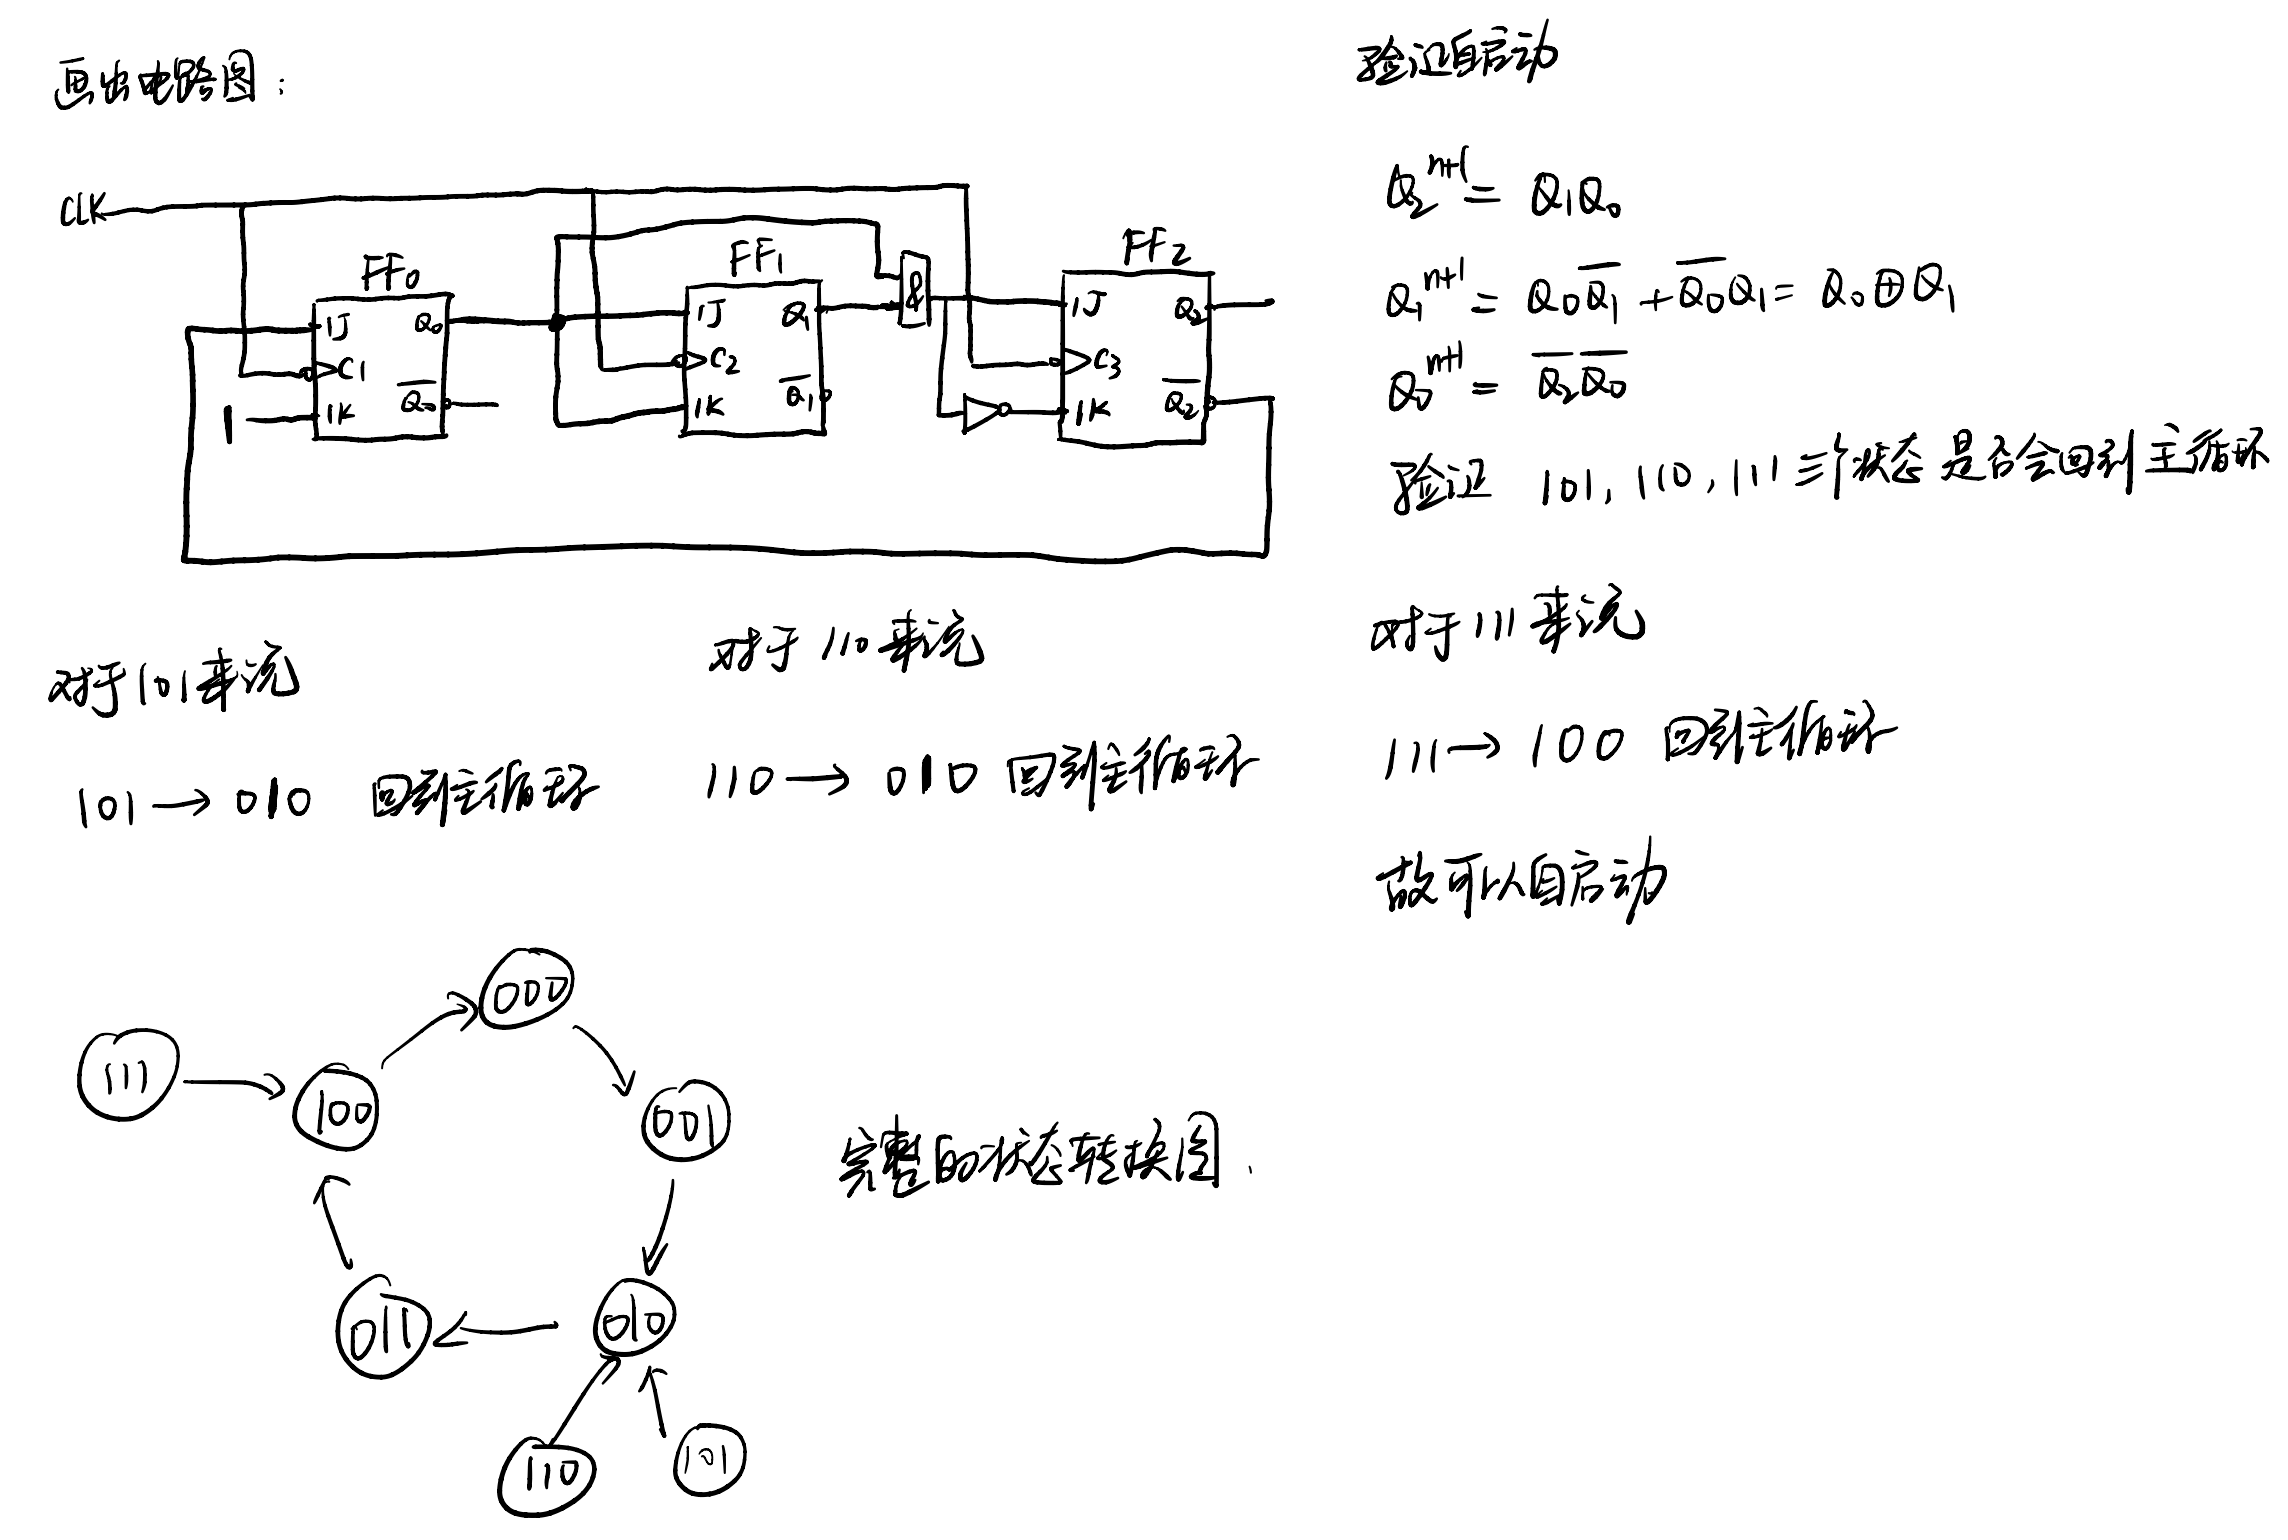 画出电路图:
CLK
FF₀
1J Q₀
C1
1 1K Q̅₀
FF₁
1J Q₁
C2
1K Q̅₁
&
FF₂
1J Q₂
C3
1K Q̅₂
验证自启动
Q₂ⁿ⁺¹ = Q₁Q₀
Q₁ⁿ⁺¹ = Q₀Q̅₁ + Q̅₀Q₁ = Q₀⊕Q₁
Q₀ⁿ⁺¹ = Q̅₂Q̅₀
验证 101, 110, 111 三个状态 是否会回到主循环
对于101来说
101 → 010 回到主循环
对于 110 来说
110 → 010 回到主循环
对于 111 来说
111 → 100 回到主循环
故可以自启动
000
111
100
001
011
010
110
101
完整的状态转换图.